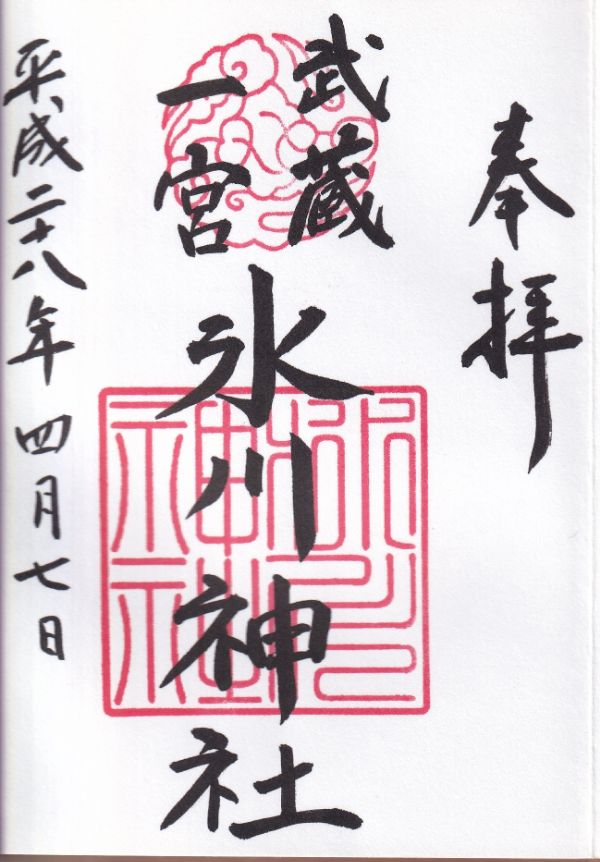 奉拝
武蔵
一宮
氷川神社
平成二十八年四月七日
氷川
神社